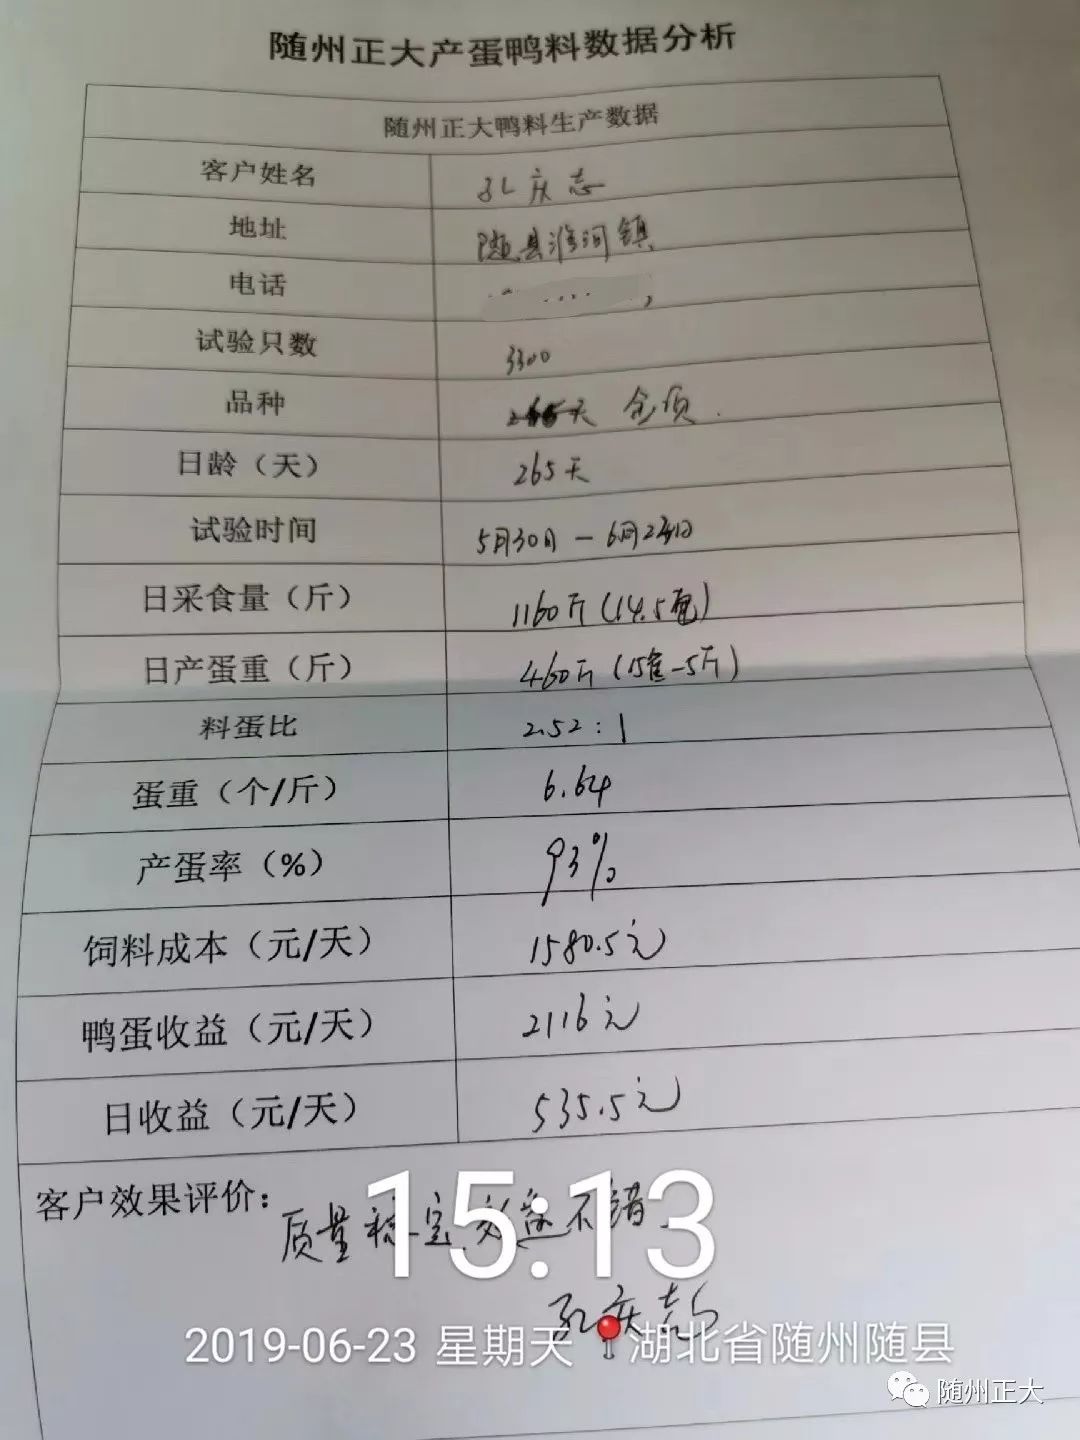 随州正大产蛋鸭料数据分析
随州正大鸭料生产数据
客户姓名 孔庆志
地址 随县淮河镇
电话
试验只数 3300
品种 金项
日龄（天） 265天
试验时间 5月30日-6月23日
日采食量（斤） 1160斤(14.5包)
日产蛋重（斤） 460斤(15筐-5斤)
料蛋比 2.52:1
蛋重（个/斤） 6.64
产蛋率（%） 93%
饲料成本（元/天） 1580.5元
鸭蛋收益（元/天） 2116元
日收益（元/天） 535.5元
客户效果评价: 质量稳定,效益不错.
15:13
孔庆志
2019-06-23 星期天 湖北省随州随县
随州正大